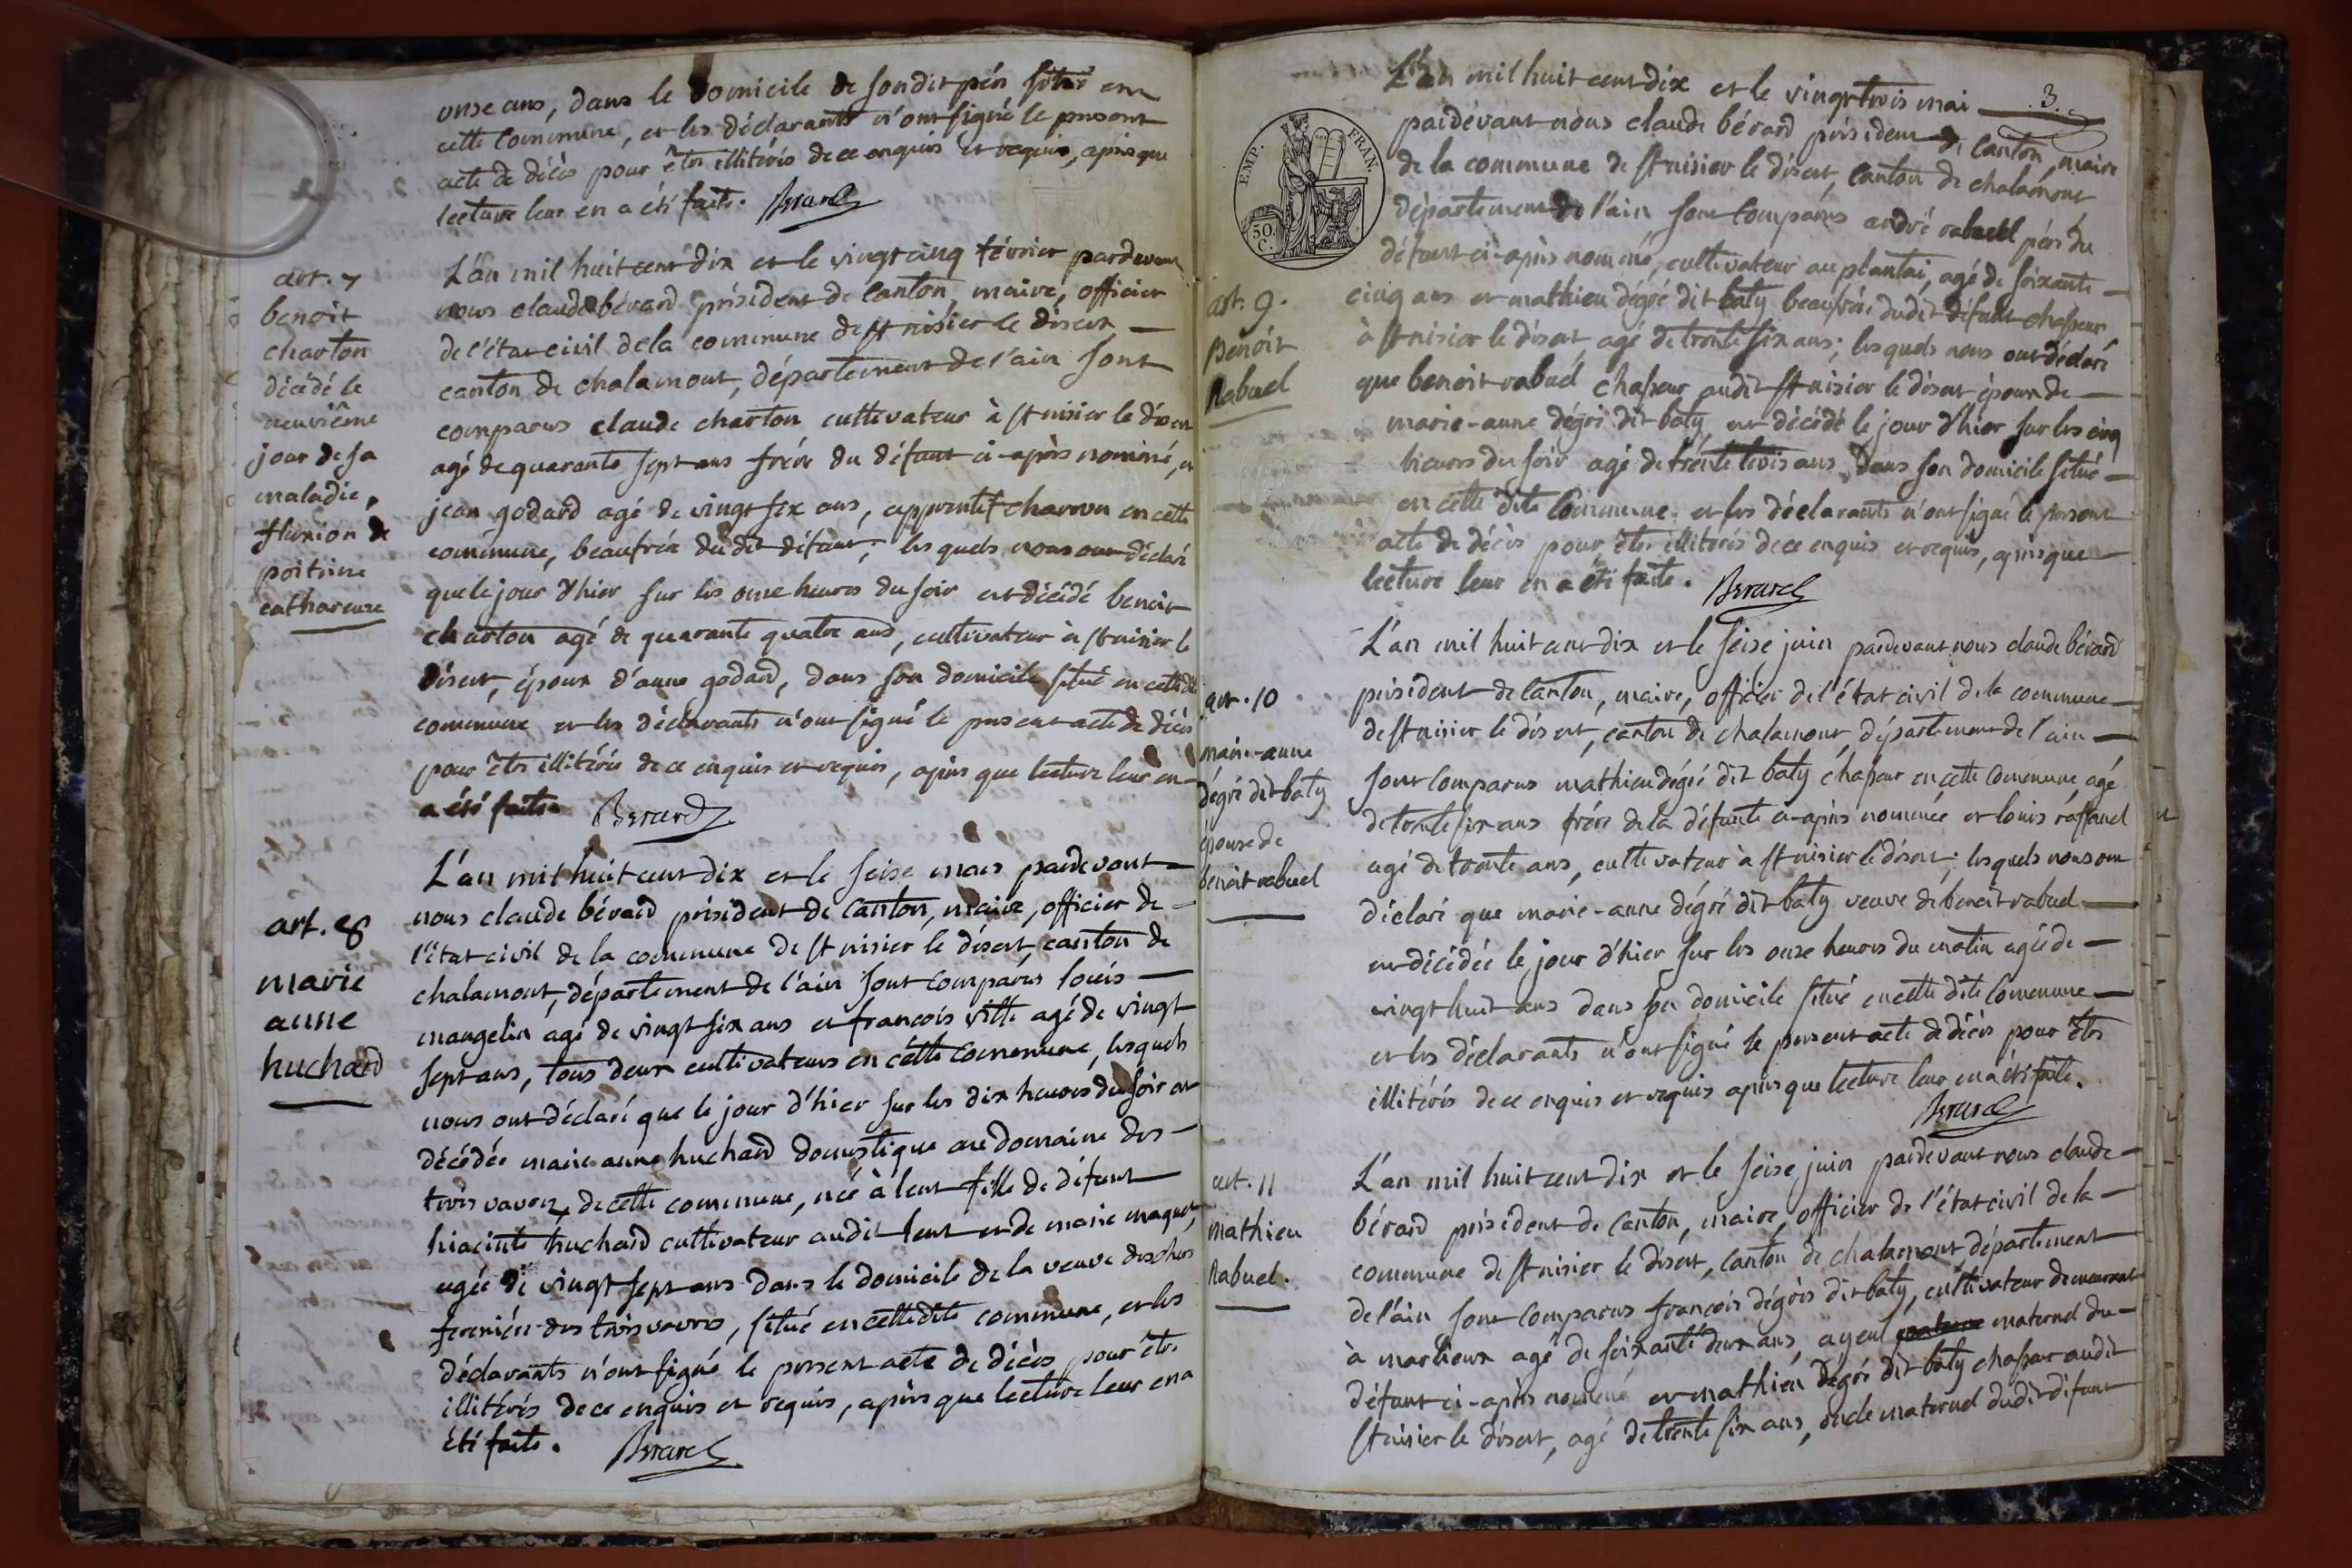 onse ans, dans le domicile de sondit pére situé en
cette commune, et les déclarants n'ont signé le present
acte de décès pour être illitérés de ce enquis et requis, après que
lecture leur en a été faite. Berard
art. 7
benoit
charton
décédé le
neuviême
jour de sa
maladie,
fluxion de
poitrine
cathareuse
L'an mil huit cent dix et le vingt cinq février pardevant
nous claude bérard président de canton, maire, officier
de l'état civil de la commune de st nisier le disert,
canton de chalamont, département de l'ain sont
comparus claude charton cultivateur à st nisier le désert
agé de quarante sept ans frére du défunt ci-après nommé, et
jean godard agé de vingt six ans, apprentif charron en cette
commune, beaufrére dudit défunt; lesquels nous ont déclaré
que le jour d'hier sur les onse heures du soir est décédé benoit
charton agé de quarante quatre ans, cultivateur à st nisier le
désert, époux d'anne godard, dans son domicile situé en cette dite
commune et les déclarants n'ont signé le present acte de décès
pour être illitérés de ce enquis et requis, après que lecture leur en
a été faite. Berard
art. 8
marie
anne
huchard
L'an mil huit cent dix et le seise mars pardevant
nous claude bérard président de canton, maire, officier de
l'état civil de la commune de st nisier le désert, canton de
chalamont, département de l'ain sont comparus louis
mangelin agé de vingt six ans et francois ville agé de vingt
sept ans, tous deux cultivateurs en cette commune, lesquels
nous ont déclaré que le jour d'hier sur les dix heures du soir est
décédée marie anne huchard domestique au domaine des
trois vavres, de cette commune, née à lent fille de défunt
hiacinte huchard cultivateur audit lent et de marie maquet,
agée de vingt sept ans dans le domicile de la veuve
fermiére des trois vavres, situé en cette dite commune, et les
déclarants n'ont signé le present acte de décès pour être
illitérés de ce enquis et requis, après que lecture leur en a
été faite. Berard
3.
EMP. FRAN.
50. C.
L'an mil huit cent dix et le vingt trois mai
pardevant nous claude bérard président de canton, maire
de la commune de st nisier le désert, canton de chalamont
département de l'ain sont comparus andré rabuel pére du
défunt ci-après nommé, cultivateur au plantai, agé de soixante
cinq ans et mathieu dégré dit baty beaufrére dudit défunt chasseur
à st nisier le désert, agé de trente six ans; lesquels nous ont déclaré
que benoit rabuel chasseur audit st nisier le désert époux de
marie-anne dégré dit baty est décédé le jour d'hier sur les cinq
heures du soir agé de trente trois ans, dans son domicile situé
en cette dite commune. et les déclarants n'ont signé le present
acte de décès pour être illitérés de ce enquis et requis, après que
lecture leur en a été faite. Berard
art. 9.
Benoit
Rabuel
art. 10
marie-anne
dégré dit baty
épouse de
benoit rabuel
L'an mil huit cent dix et le seise juin pardevant nous claude bérard
président de canton, maire, officier de l'état civil de la commune
de st nisier le désert, canton de chalamont, département de l'ain
sont comparus mathieu dégré dit baty chasseur en cette commune, agé
de trente six ans frére de la défunte ci-après nommée et louis raffand
agé de trente ans, cultivateur à st nisier le désert; lesquels nous ont
déclaré que marie-anne dégré dit baty veuve de benoit rabuel
est décédée le jour d'hier sur les onse heures du matin agée de
vingt huit ans dans son domicile situé en cette dite commune
et les déclarants n'ont signé le present acte de décès pour être
illitérés de ce enquis et requis après que lecture leur en a été faite.
Berard
art. 11
mathieu
Rabuel.
L'an mil huit cent dix et le seise juin pardevant nous claude
bérard président de canton, maire, officier de l'état civil de la
commune de st nisier le disert, canton de chalamont, département
de l'ain sont comparus francois dégrés dit baty, cultivateur demeurant
à marlieux agé de soixante deux ans, ayeul maternel du
défunt ci-après nommé et mathieu dégré dit baty chasseur audit
st nisier le désert, agé de trente six ans, oncle maternel dudit défunt